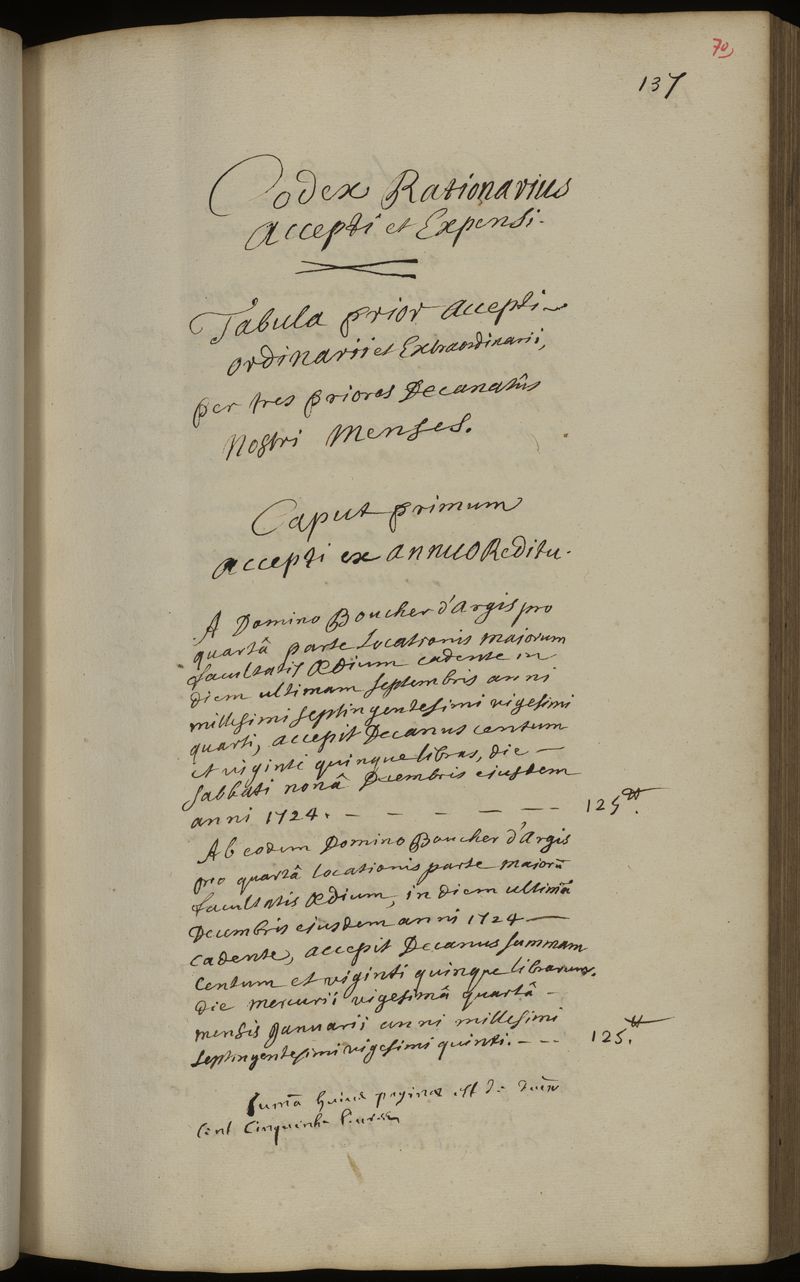 70
137
Codex Rationarius
Accepti et Expensi.
Tabula prior accepti
ordinarii et Extraordinarii,
per tres priores Decanatûs
Nostri Menses.
Caput primum
accepti ex annuo Reditu.
A Domino Boucher d'Argis pro
quartâ parte Locationis majorum
facultatis Ædium cadente in
diem ultimam septembris anni
millesimi septingentesimi vigesimi
quarti, accepit Decanus centum
et viginti quinque libras, die —
sabbati nonâ Decembris ejusdem
anni 1724. — — — — — 125ᵗᵗ.
Ab eodem Domino Boucher d'Argis
pro quartâ locationis parte majorū
facultatis Ædium, in diem ultimā
Decembris ejusdem anni 1724 —
cadente, accepit Decanus summam
centum et viginti quinque librarum,
die mercurii vigesimâ quartâ —
mensis Januarii anni millesimi
septingentesimi vigesimi quinti. — — 125ᵗᵗ.
Sum̄a huius paginæ est de
cent Cinquante